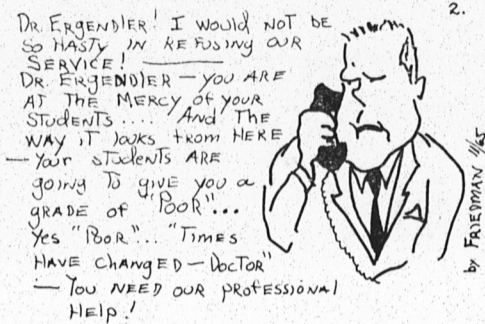 2.
DR. ERGENDIER! I WOULD NOT BE
SO HASTY IN REFUSING OUR
SERVICE!
DR. ERGENDIER — YOU ARE
AT THE MERCY of YOUR
STUDENTS.... AND THE
WAY IT looks from HERE
— Your STUDENTS ARE
going To give you a
GRADE of "POOR"...
Yes "POOR"... "TIMES
HAVE CHANGED — DOCTOR"
— YOU NEED OUR PROFESSIONAL
HELP!
by FRIEDMAN 11/65